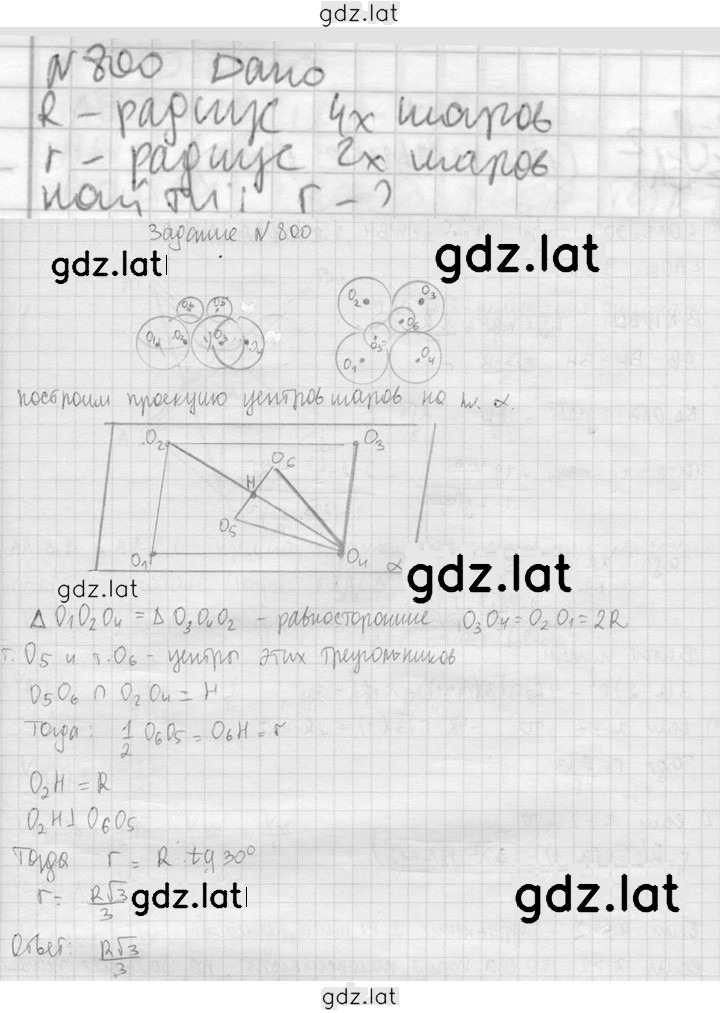 gdz.lat
N 800 Дано
R – радиус 4х шаров
r – радиус 2х шаров
Найти: r – ?
Задание N 800
gdz.lat
gdz.lat
O2 O3
O6
O5
O1 O4
построим проекцию центров шаров на пл. α.
O2 O3
O6
H
O5
O1 O4 α
gdz.lat
gdz.lat
Δ O1O2O4 = Δ O3O4O2 – равносторонние O3O4 = O2O1 = 2R
т. O5 и т. O6 – центры этих треугольников
O5O6 ∩ O2O4 = H
Тогда: 1/2 O6O5 = O6H = r
O2H = R
O2H ⊥ O6O5
Тогда r = R · tg 30°
r = R√3/3
gdz.lat
gdz.lat
Ответ: R√3/3
gdz.lat